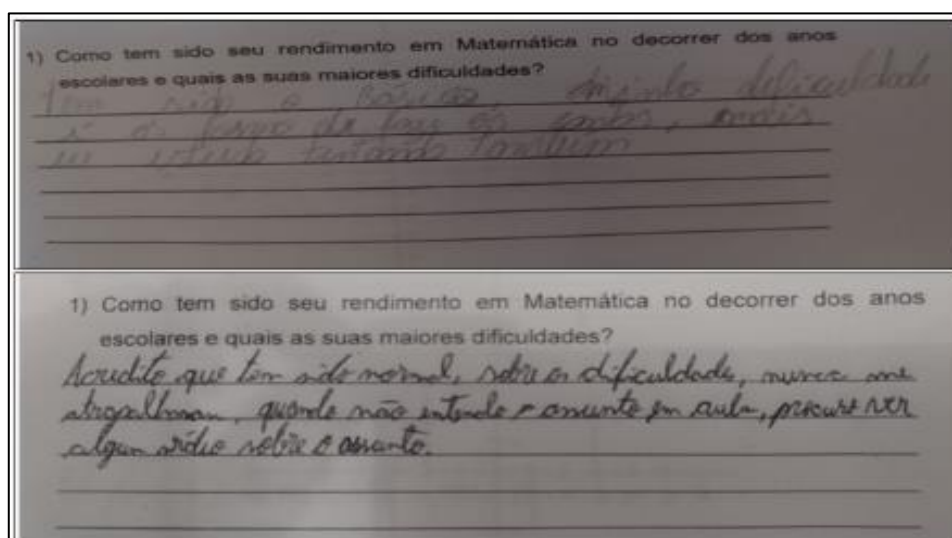 1) Como tem sido seu rendimento em Matemática no decorrer dos anos
escolares e quais as suas maiores dificuldades?
Tem sido o básico, minha dificuldade
é as de os contos, mais
eu estudo também
1) Como tem sido seu rendimento em Matemática no decorrer dos anos
escolares e quais as suas maiores dificuldades?
Acredito que tem sido normal, sobre as dificuldade, nunca me
quando não entendo o assunto em aula, procuro ver
algum vídeo sobre o assunto.